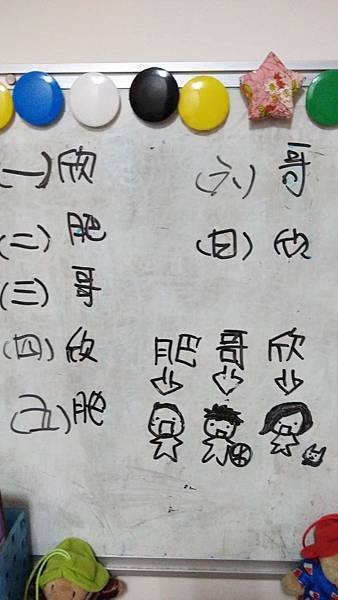 (一) 欣
(二) 肥
(三) 哥
(四) 欣
(五) 肥
(六) 哥
(日) 欣
肥 哥 欣